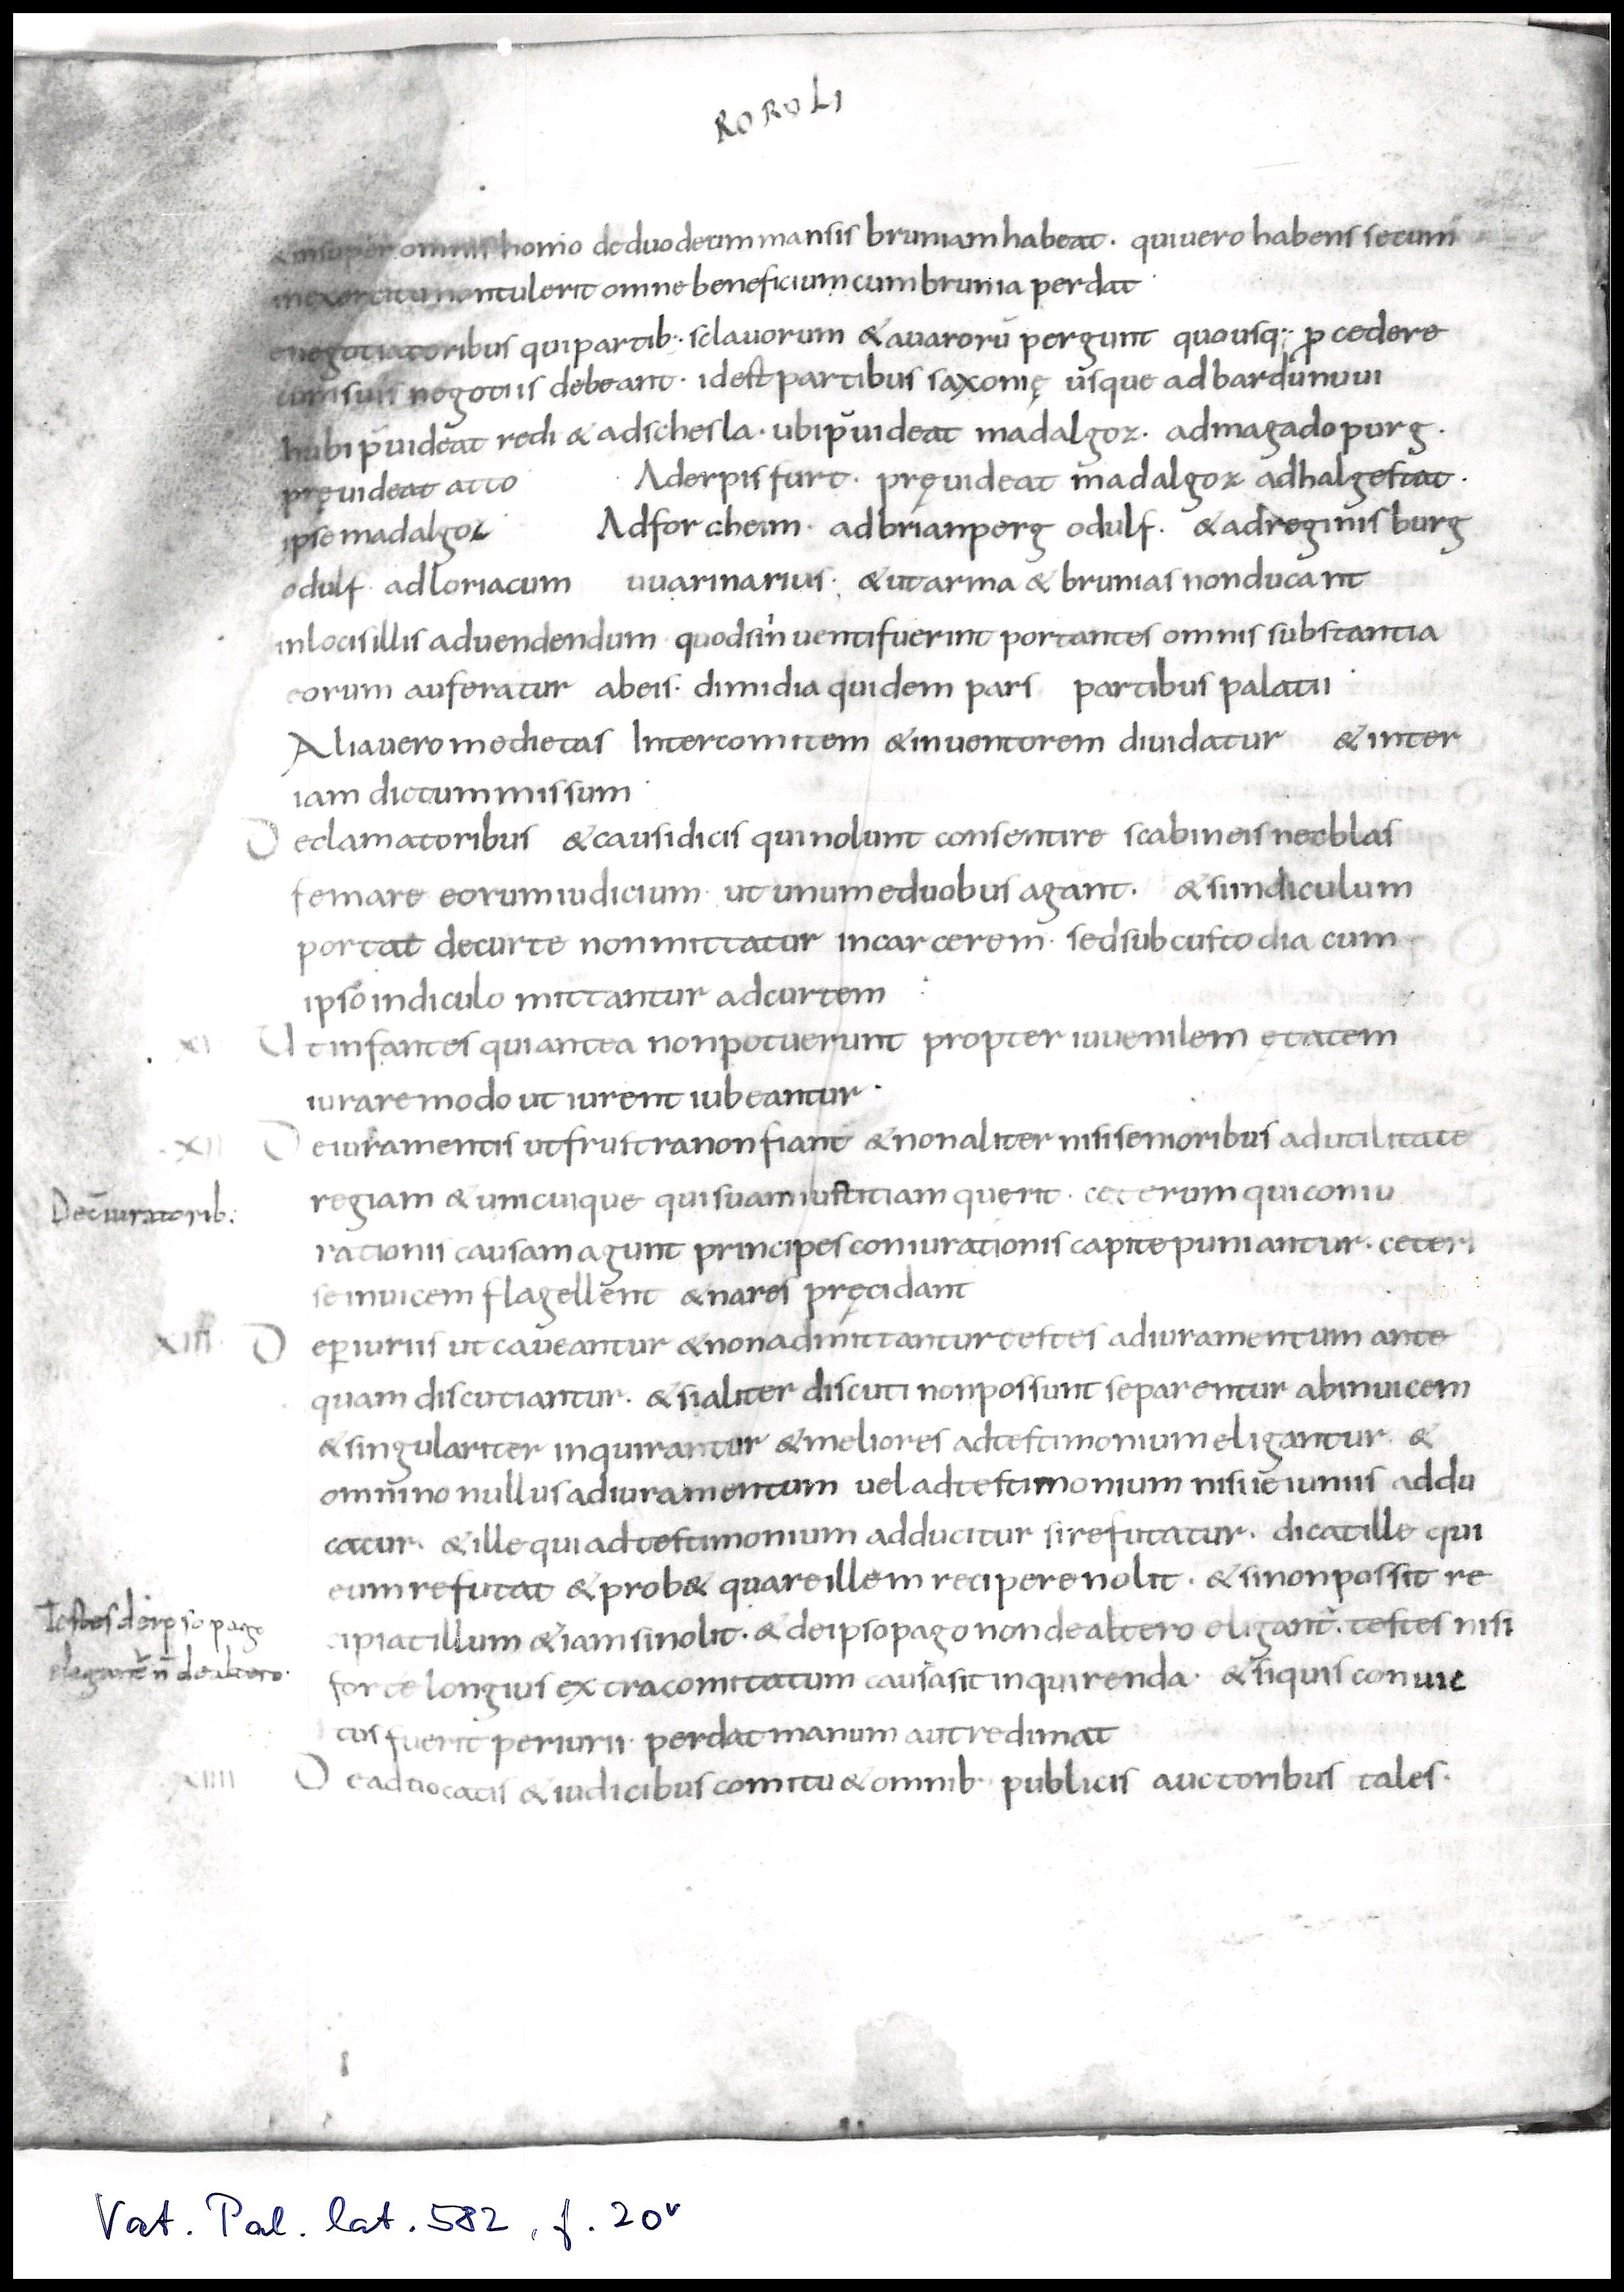 ROROLI
& insuper omnis homo de duodecim mansis bruniam habeat. qui uero habens secum
in exercitu non tulerit omne beneficium cum brunia perdat
e negotiatoribus qui partib: sclauorum & auarorū pergunt quousq; procedere
cum suis negotiis debeant. id est partibus saxonię usque ad bardunuui
hubi p̄uideat redi & ad schesla. ubi p̄uideat madalgoz. ad magadopurg.
pręuideat atto Ad erpisfurt. pręuideat madalgoz ad halgestat.
ipse madalgoz Ad forcheim. ad brianperg odulf. & ad reginisburg
odulf. ad loriacum uuarinarius. & ut arma & brunias non ducant
in locis illis ad uendendum quod si inuenti fuerint portantes omnis substantia
eorum auferatur ab eis. dimidia quidem pars partibus palatii
Alia uero medietas Inter comitem & inuentorem diuidatur & inter
iam dictum missum
De clamatoribus & causidicis qui nolunt consentire scabineis nec blas
femare eorum iudicium ut unum e duobus agant. & si indiculum
portat de curte non mittatur in carcerem. sed sub custodia cum
ipso indiculo mittantur ad curtem
XI Ut infantes qui antea non potuerunt propter iuuenilem ętatem
iurare modo ut iurent iubeantur.
XII De iuramentis ut frustra non fiant & non aliter nisi senioribus ad utilitate
regiam & unicuique qui suam iustitiam querit. ceterum qui coniu
Dec̄iuratorib:
rationis causam agunt principes coniurationis capite puniantur. ceteri
se inuicem flagellent & nares pręcidant
XIII De p̱iuriis ut caueantur & non admittantur testes ad iuramentum ante
quam discutiantur. & si aliter discuti non possunt separentur ab inuicem
& singulariter inquirantur & meliores ad testimonium eligantur. &
omnino nullus ad iuramentum uel ad testimonium nisi ieiunus addu
catur. & ille qui ad testimonium adducitur si refutatur. dicat ille qui
eum refutat & prob& quare illem recipere nolit. & si non possit re
Testes de ipso pago
cipiat illum & iam si nolit. & de ipso pago non de altero eligant. testes nisi
elegant n̄ de altero.
forte longius extra comitatum causa sit inquirenda. & si quis conuic
tus fuerit periurii perdat manum aut redimat
XIIII De aduocatis & iudicibus comitu & omnib publicis auctoribus tales.
Vat. Pal. lat. 582, f. 20v